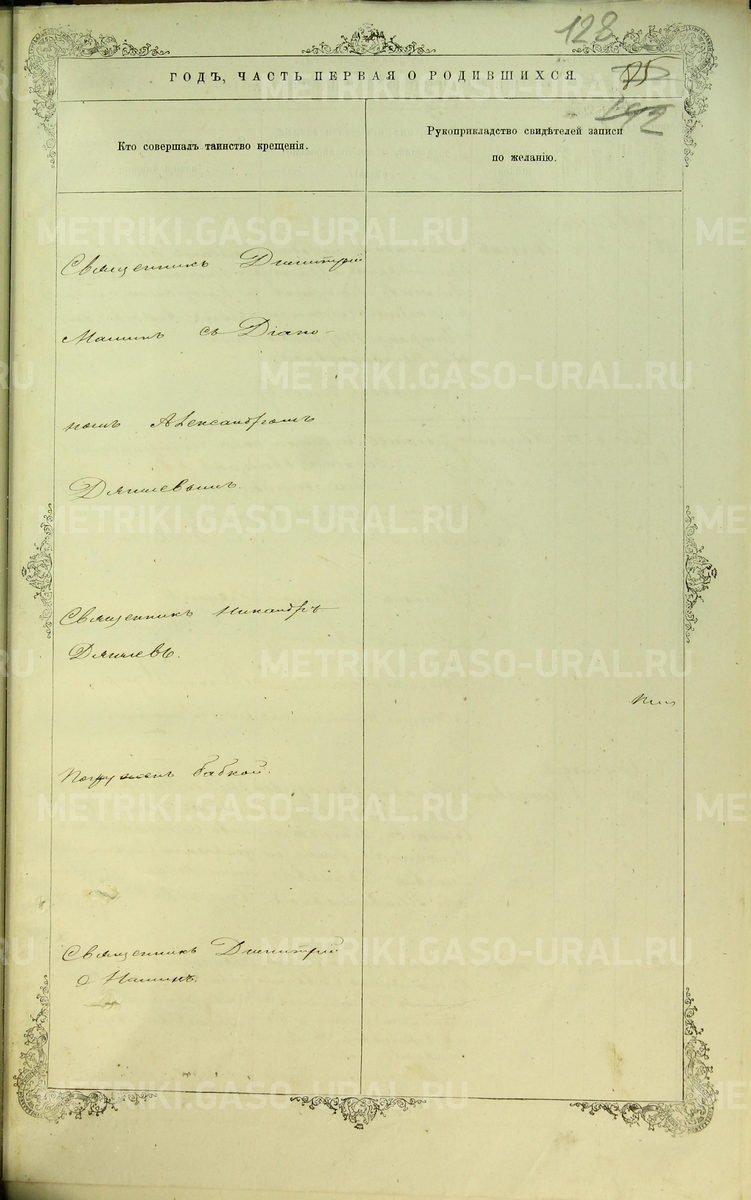 128
ГОДЪ, ЧАСТЬ ПЕРВАЯ О РОДИВШИХСЯ
75
192
Кто совершалъ таинство крещенія.
Рукоприкладство свидѣтелей записи
по желанію.
Священникъ Димитрій
Машинъ съ Діако-
номъ Александромъ
Дягилевымъ.
Священникъ Никандръ
Дягилевъ.
Погруженъ бабкой.
Священникъ Димитрій
METRIKI.GASO-URAL.RU